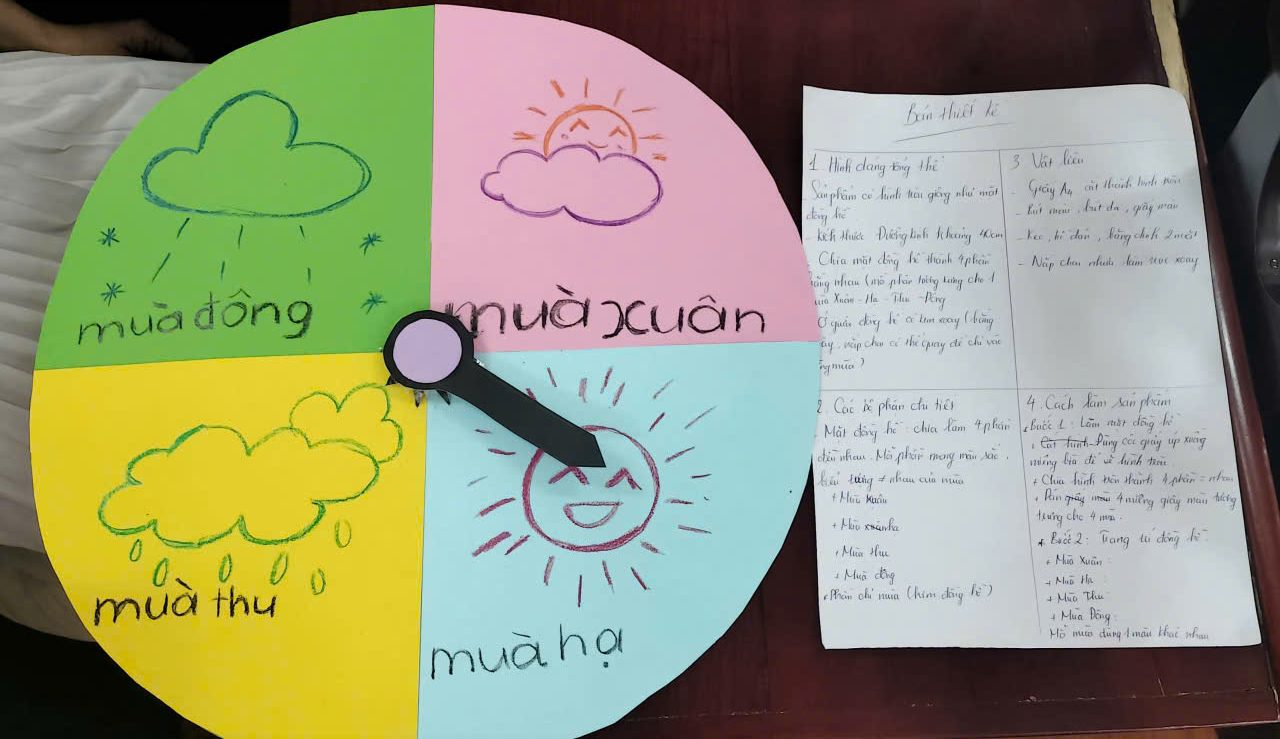 mùa đông
mùa xuân
mùa thu
mùa hạ
Bản thiết kế
1 Hình dạng tổng thể
- Sản phẩm có hình tròn giống như mặt
đồng hồ
- Kích thước Đường kính khoảng 40cm
- Chia mặt đồng hồ thành 4 phần
bằng nhau (mỗi phần tượng trưng cho 1
mùa Xuân - Hạ - Thu - Đông
Ở giữa đồng hồ có kim xoay (bằng
nắp chai có thể quay để chỉ vào
từng mùa)
2. Các bộ phận chi tiết
- Mặt đồng hồ chia làm 4 phần
đều nhau. Mỗi phần mang màu sắc,
biểu tượng ≠ nhau của mùa
+ Mùa Xuân
+ Mùa hạ
+ Mùa thu
+ Mùa đông
Phần chỉ mùa (kim đồng hồ)
3 Vật liệu
- Giấy A4 cắt thành hình tròn
- Bút màu, bút dạ, giấy màu
- Keo, hồ dán, băng dính 2 mặt
- Nắp chai nhựa làm trục xoay
4. Cách làm sản phẩm
Bước 1: Làm mặt đồng hồ
+ Cắt hình Dùng giấy úp xuống
miếng bìa để vẽ hình tròn
+ Chia hình tròn thành 4 phần = nhau
+ Dán giấy màu 4 miếng giấy màu tượng
trưng cho 4 mùa.
* Bước 2: Trang trí đồng hồ
+ Mùa Xuân:
+ Mùa Hạ:
+ Mùa Thu
+ Mùa Đông:
Mỗi mùa dùng 1 màu khác nhau